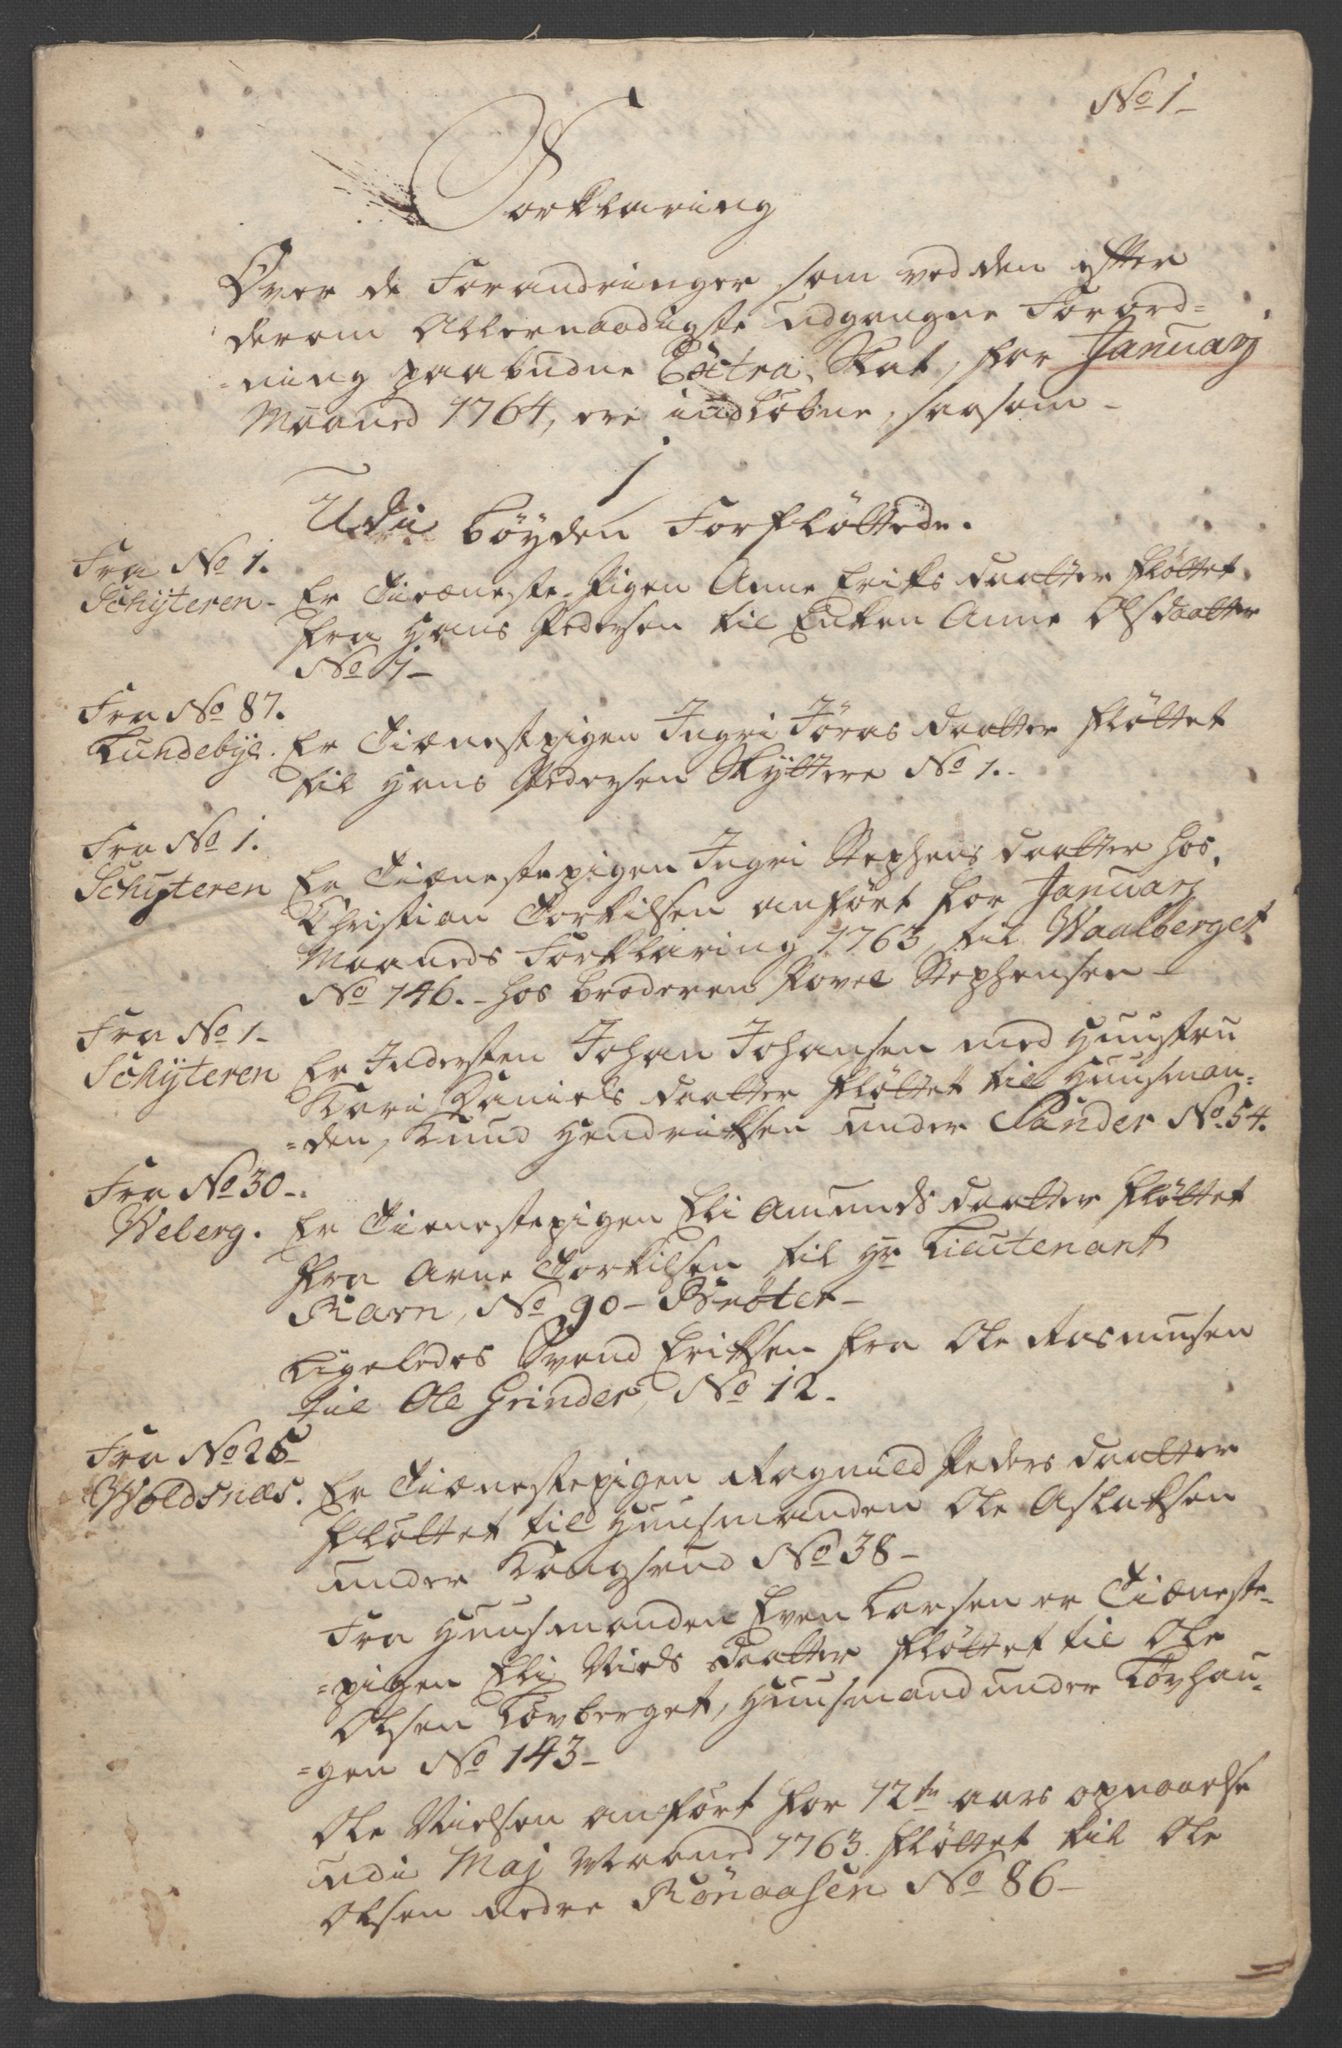 No 1-
Forklaring
Over de Forandringer som ved den efter
derom Allernaadigste udgangne Forord=
=ning paabudne Extra Skat, for Januarj
Maaned 1764, ere indløbne, saasom-
1
Udi bøyden Forfløttede.
Fra No 1.
Schÿteren-
Er Tieneste-Pigen Anne Eriks daatter fløttet
fra Hans Pedersen til Enken Anne Olsdaatter
No 1-
Fra No 87.
Lundebÿe.
Er Tienestepigen Ingri Jöras daatter fløttet
til Hans Pedersen Skÿttere No 1.-
Fra No 1.
Schÿteren
Er Tienestepigen Ingri Stephens daatter hos
Christian Torkilsen anført for Januarj
Maaneds Forklaring 1763, til Waalberget
No 146.- hos broderen Povel Stephensen-
Fra No 1-
Schÿteren
Er Indersten Johan Johansen med Huustru
Kari Daniels daatter fløttet til Huusman=
=den, Knud Hendriksen under Pünder No 54.
Fra No 30-.
Weberg.
Er Tienestepigen Eli Amunds daatter fløttet
fra Arne Torkilsen til Hr Lieutenant
Ravn, No 90- Brøter-
Ligeledes Svend Eriksen fra Ole Rasmusen
til Ole Grinder, No 12-
Fra No 25-
Woldsnæs.
Er Tienestepigen Ragnild Peders daatter
fløttet til Huusmanden Ole Aslaksen
under Kongsrud No 38-
Fra Huusmanden Even Larsen er Tieneste=
=pigen Eli Niels daatter fløttet til Ole
Olsen Løvberget, Huusmand under Løvhau=
=gen No 143-
Ole Nielsen anført for 12te aars opnaaelse
udi Maj Maaned 1763. fløttet til Ole
Olsen nedre Rönaasen No 86-